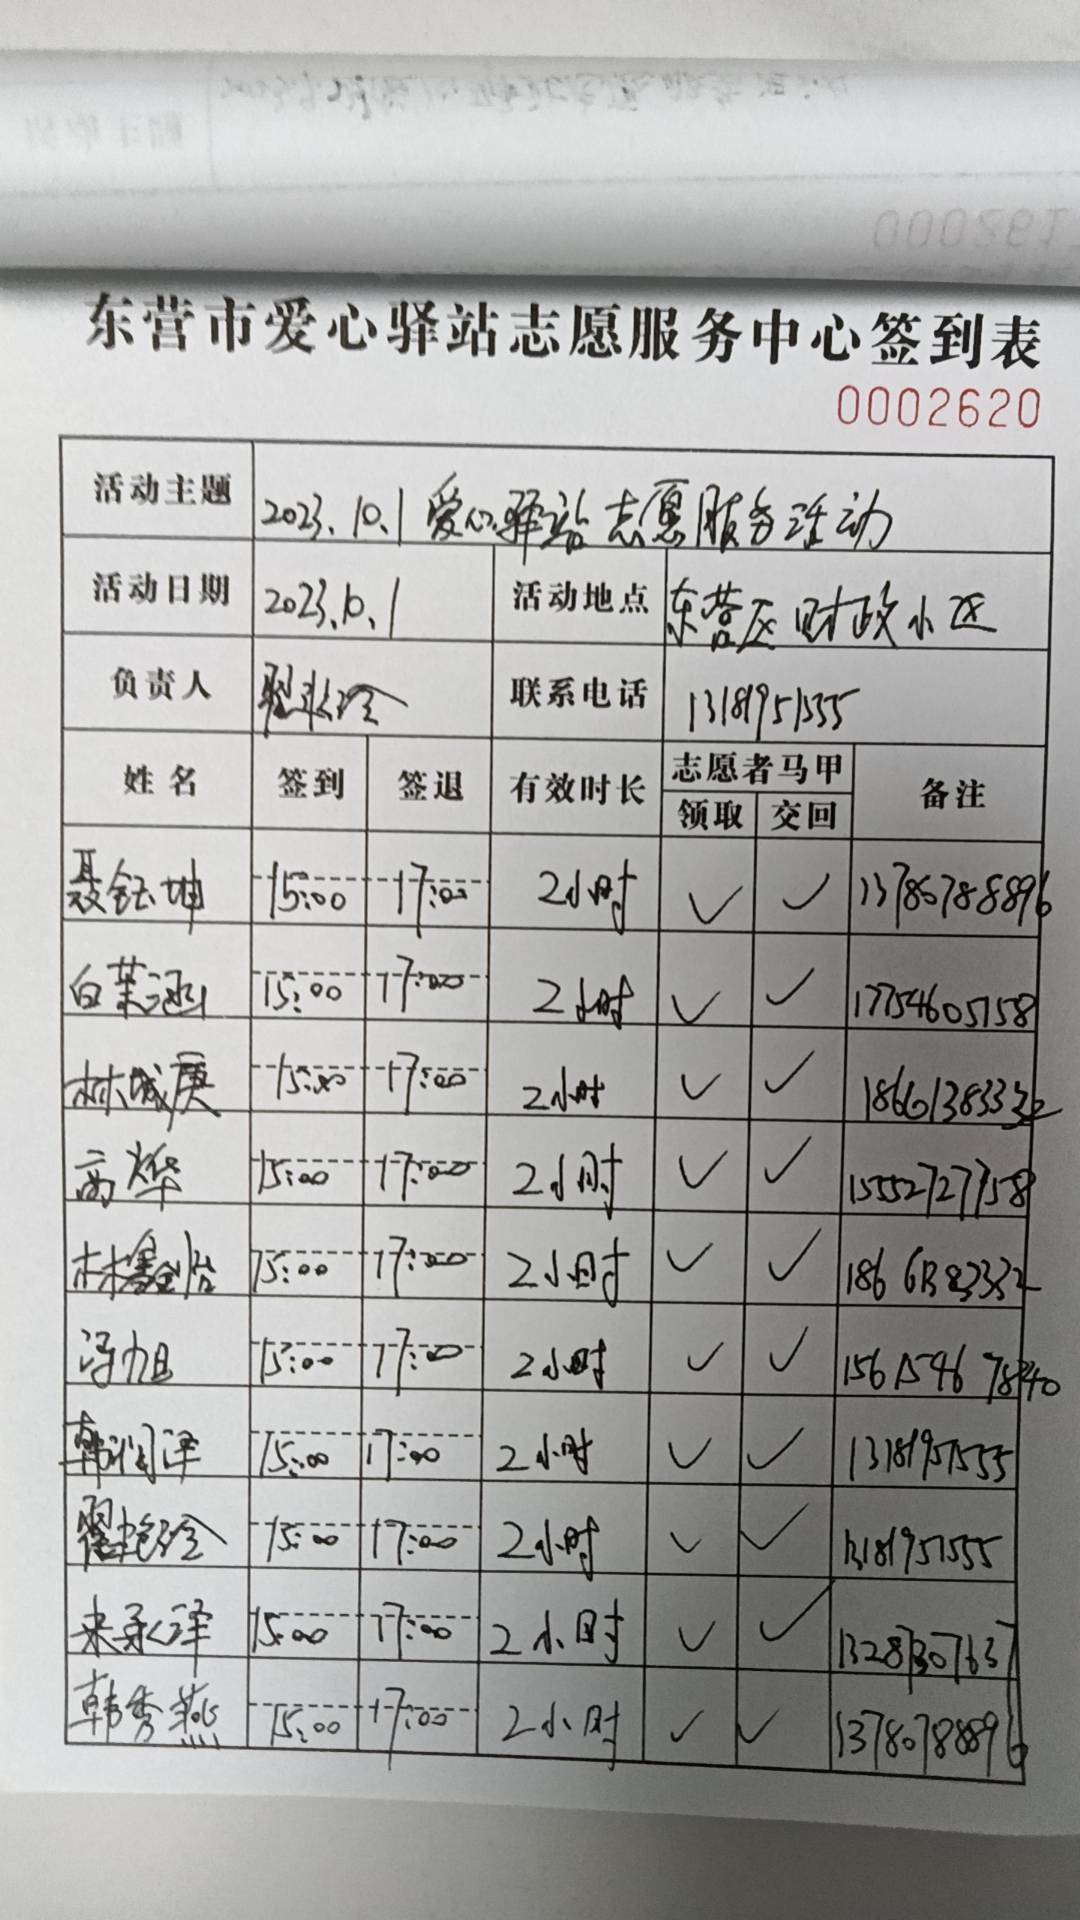 东营市爱心驿站志愿服务中心签到表
0002620
活动主题 2023.10.1爱心驿站志愿服务活动
活动日期 2023.10.1 活动地点 东营区财政小区
负责人 联系电话 13181951555
姓名 签到 签退 有效时长 志愿者马甲 备注
领取 交回
聂钰坤 15:00 17:00 2小时 ✓ ✓ 13780788896
白茉涵 15:00 17:00 2小时 ✓ ✓ 17754605158
林城庚 15:00 17:00 2小时 ✓ ✓ 18661383332
高烨 15:00 17:00 2小时 ✓ ✓ 15552727758
林鑫怡 15:00 17:00 2小时 ✓ ✓ 18661383332
冯旭 15:00 17:00 2小时 ✓ ✓ 15615467840
韩润泽 15:00 17:00 2小时 ✓ ✓ 13181951555
翟艳玲 15:00 17:00 2小时 ✓ ✓ 13181951555
来承泽 15:00 17:00 2小时 ✓ ✓ 13287307637
韩秀燕 15:00 17:00 2小时 ✓ ✓ 13780788896